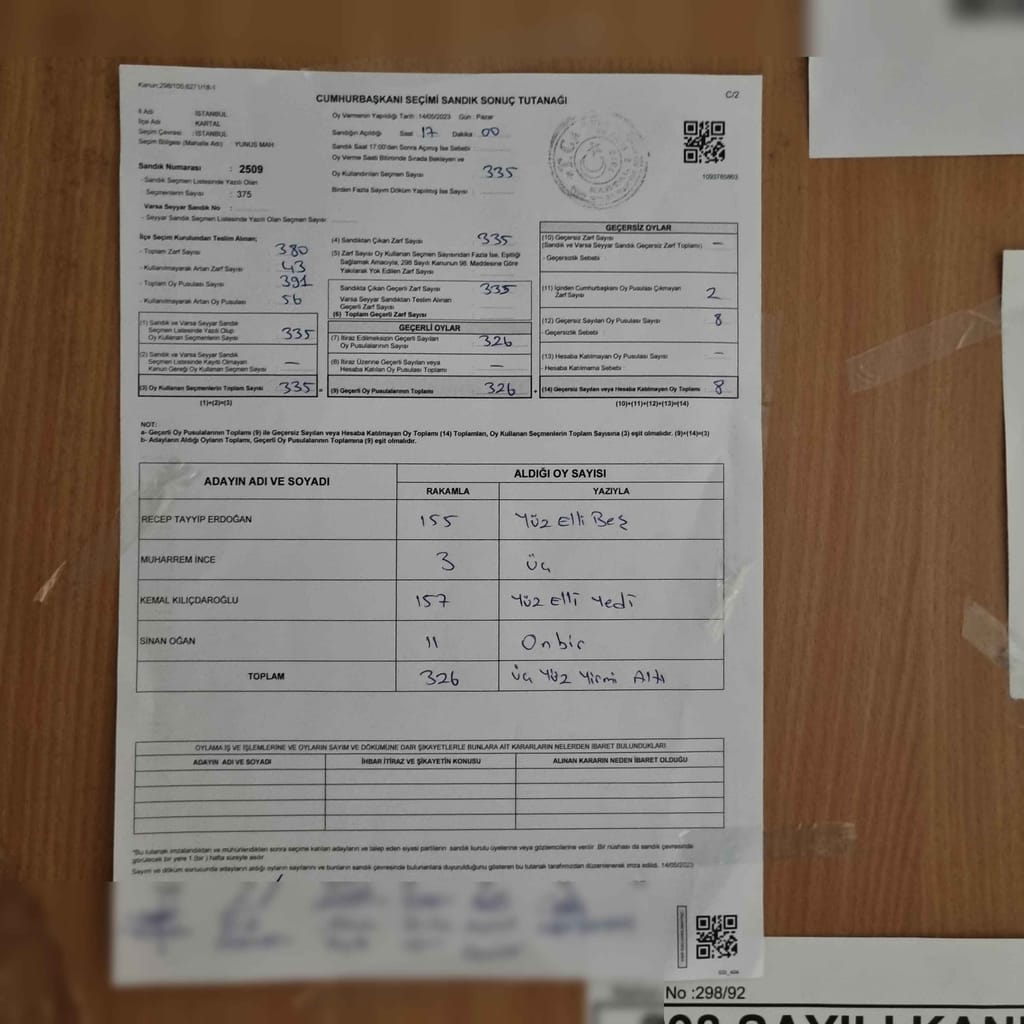 Kanun:298/105,6271/18-1
CUMHURBAŞKANI SEÇİMİ SANDIK SONUÇ TUTANAĞI
C/2
İl Adı : İSTANBUL
İlçe Adı : KARTAL
Seçim Çevresi : İSTANBUL
Seçim Bölgesi (Mahalle Adı) : YUNUS MAH.
Sandık Numarası : 2509
- Sandık Seçmen Listesinde Yazılı Olan
Seçmenlerin Sayısı : 375
Varsa Seyyar Sandık No :
- Seyyar Sandık Seçmen Listesinde Yazılı Olan Seçmen Sayısı
Oy Vermenin Yapıldığı Tarih : 14/05/2023 Gün : Pazar
Sandığın Açıldığı Saat 17 Dakika 00
Sandık Saat 17:00'den Sonra Açılmış İse Sebebi :
Oy Verme Saati Bitiminde Sırada Bekleyen ve
Oy Kullandırılan Seçmen Sayısı 335
Birden Fazla Sayım Döküm Yapılmış İse Sayısı :
1093785863
İlçe Seçim Kurulundan Teslim Alınan;
- Toplam Zarf Sayısı 380
- Kullanılmayarak Artan Zarf Sayısı 43
- Toplam Oy Pusulası Sayısı 391
- Kullanılmayarak Artan Oy Pusulası 56
(1) Sandık ve Varsa Seyyar Sandık
Seçmen Listesinde Yazılı Olup
Oy Kullanan Seçmenlerin Sayısı 335
(2) Sandık ve Varsa Seyyar Sandık
Seçmen Listesinde Kayıtlı Olmayan
Kanun Gereği Oy Kullanan Seçmen Sayısı —
(3) Oy Kullanan Seçmenlerin Toplam Sayısı 335 =
(1)+(2)=(3)
(4) Sandıktan Çıkan Zarf Sayısı 335
(5) Zarf Sayısı Oy Kullanan Seçmen Sayısından Fazla İse, Eşitliği
Sağlamak Amacıyla, 298 Sayılı Kanunun 98. Maddesine Göre
Yakılarak Yok Edilen Zarf Sayısı
Sandıkta Çıkan Geçerli Zarf Sayısı 335
Varsa Seyyar Sandıktan Teslim Alınan
Geçerli Zarf Sayısı
(6) Toplam Geçerli Zarf Sayısı
GEÇERLİ OYLAR
(7) İtiraz Edilmeksizin Geçerli Sayılan
Oy Pusulalarının Sayısı 326
(8) İtiraz Üzerine Geçerli Sayılan veya
Hesaba Katılan Oy Pusulası Toplamı —
(9) Geçerli Oy Pusulalarının Toplamı 326 +
GEÇERSİZ OYLAR
(10) Geçersiz Zarf Sayısı
(Sandık ve Varsa Seyyar Sandık Geçersiz Zarf Toplamı) —
- Geçersizlik Sebebi :
(11) İçinden Cumhurbaşkanı Oy Pusulası Çıkmayan
Zarf Sayısı 2
(12) Geçersiz Sayılan Oy Pusulası Sayısı 8
- Geçersizlik Sebebi :
(13) Hesaba Katılmayan Oy Pusulası Sayısı —
- Hesaba Katılmama Sebebi :
(14) Geçersiz Sayılan veya Hesaba Katılmayan Oy Toplamı 8
(10)+(11)+(12)+(13)=(14)
NOT:
a- Geçerli Oy Pusulasının Toplamı (9) ile Geçersiz Sayılan veya Hesaba Katılmayan Oy Toplamı (14) Toplamları, Oy Kullanan Seçmenlerin Toplam Sayısına (3) eşit olmalıdır. (9)+(14)=(3)
b- Adayların Aldığı Oyların Toplamı, Geçerli Oy Pusulalarının Toplamına (9) eşit olmalıdır.
ADAYIN ADI VE SOYADI
ALDIĞI OY SAYISI
RAKAMLA YAZIYLA
RECEP TAYYİP ERDOĞAN 155 Yüz Elli Beş
MUHARREM İNCE 3 Üç
KEMAL KILIÇDAROĞLU 157 Yüz Elli Yedi
SİNAN OĞAN 11 Onbir
TOPLAM 326 Üç Yüz Yirmi Altı
OYLAMA İŞ VE İŞLEMLERİNE VE OYLARIN SAYIM VE DÖKÜMÜNE DAİR ŞİKAYETLERLE BUNLARA AİT KARARLARIN NELERDEN İBARET BULUNDUKLARI
ADAYIN ADI VE SOYADI İHBAR İTİRAZ VE ŞİKAYETİN KONUSU ALINAN KARARIN NEDEN İBARET OLDUĞU
*Bu tutanak imzalandıktan ve mühürlendikten sonra seçime katılan adayların ve talep eden siyasi partilerin sandık kurulu üyelerine veya gözlemcilerine verilir. Bir nüshası da sandık çevresinde
görülecek bir yere 1 (bir ) hafta süreyle asılır.
Sayım ve döküm sonucunda adayların aldığı oyların sayılarını ve bunların sandık çevresinde bulunanlara duyurulduğunu gösteren bu tutanak tarafımızdan düzenlenerek imza edildi. 14/05/2023
No :298/92